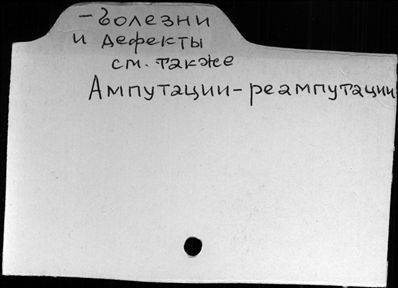 – болезни
и дефекты
см. также
Ампутации – реампутации